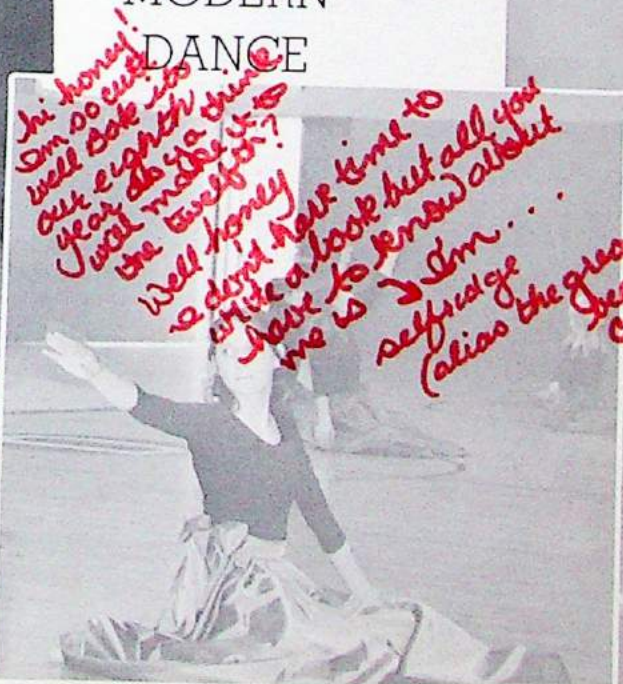 MODERN
DANCE
hi honey!
Im so cute
well Bok its
our eighth
year do ya think
well make it to
the twelfth?
Well honey
I dont have time to
write a book but all you
have to know about
me is I Im...
selfridge
(alias the